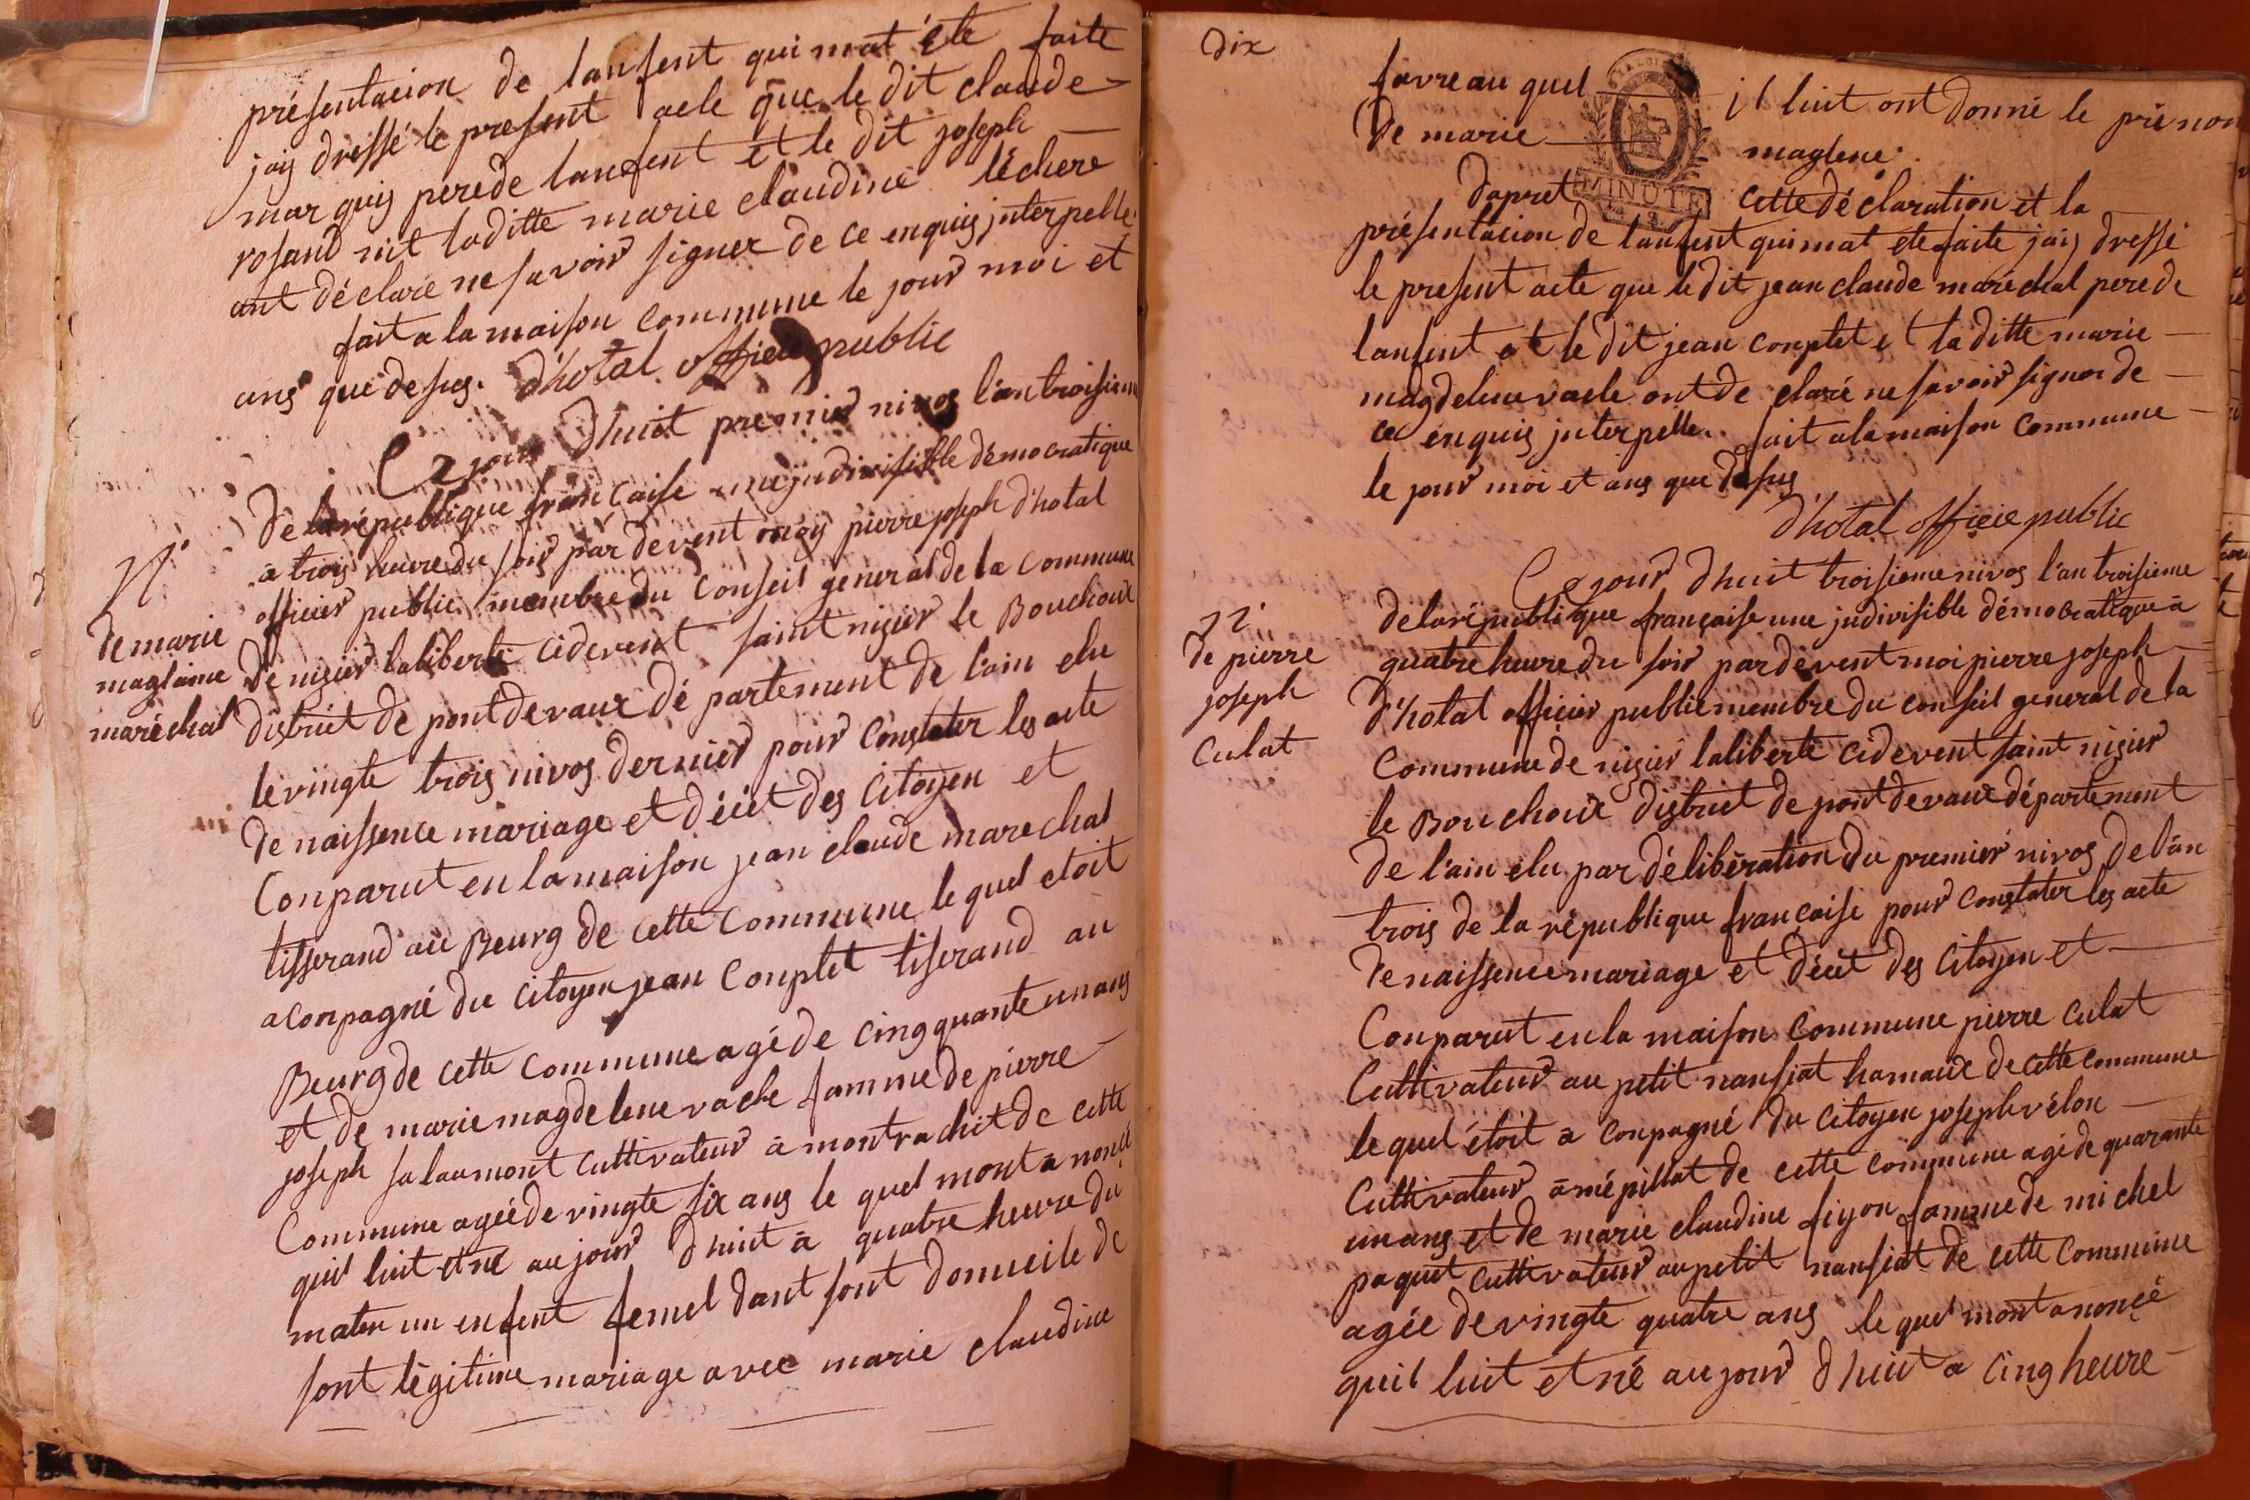 présentacion de lanfent qui mat éte faite
jais dressé le present acle que le dit claude
marquis pere de lanfent et le dit joseph
rosand nit laditte marie claudine léchere
ont déclaré ne savoir signer de ce enquis jnterpelle
fait a la maison commune le jour moi et
ans que desus. d'hotal officie public
Ce jour d'huit premier nivos l'an troisiem
de la république francaise une jndivisible démocratique
a trois heure du soir par devent moy pierre joseph d'hotal
officier public membre du conseil general de la commune
de nisier laliberté cidevent saint nisier le Bouchoux
district de pont de vaux département de l'ain elu
le vingte trois nivos dernier pour constater les acte
de naissence mariage et décet des citoyen et
Conparut en la maison jean claude marechal
tisserand au Beurg de cette commune le quel etoit
aconpagné du citoyen jean Conptet tiserand au
Beurg de cette commune agé de cingquante un ans
et de marie magdelene vacle famme de pierre
joseph salaumont cultivateur a montrachit de cette
Commune agéé de vingte six ans le quel mont a noncé
quil luit et né aujour d'huit a quatre heure du
maten un enfent femel dant sont domicile de
sont légitime mariage avec marie claudine
N.
de marie
maglaine
maréchal
dix
favre au quel il luit ont donné le prénon
de marie maglene.
MINUTE
dapret cette déclaration et la
présentacion de lanfent qui mat ete faite jais dressé
le present acte que le dit jean claude maréchal pere de
lanfent et le dit jean conptet et laditte marie
magdelene vacle ont de claré ne savoir signer de
ce enquis jnterpelle. fait a la maison commune
le jour moi et ans que desus
d'hotal officie public
Ce jour d'huit troisieme nivos l'an troisieme
de la république française une jndivisible démocratique a
quatre heure du soir par devent moi pierre joseph
d'hotal officier public membre du conseil general de la
commune de nisier laliberté cidevent saint nisier
le Bouchoux district de pont de vaux département
de l'ain elu par délibération du premier nivos de l'an
trois de la république francaise pour constater les acte
de naissence mariage et décet des citoyen et
Conparut en la maison commune pierre culat
Cultivateur au petit nansiat hamaux de cette commune
le quel étoit a conpagné du citoyen joseph vélon
Cultivateur a mépillat de cette commune agé de quarante
un ans et de marie claudine fiyon famme de michel
paquet cultivateur au petit nansiat de cette commune
agée de vingte quatre ans le quel mont anoncé
quil luit et né aujour d'huit a cing heure
N.
de pierre
joseph
culat